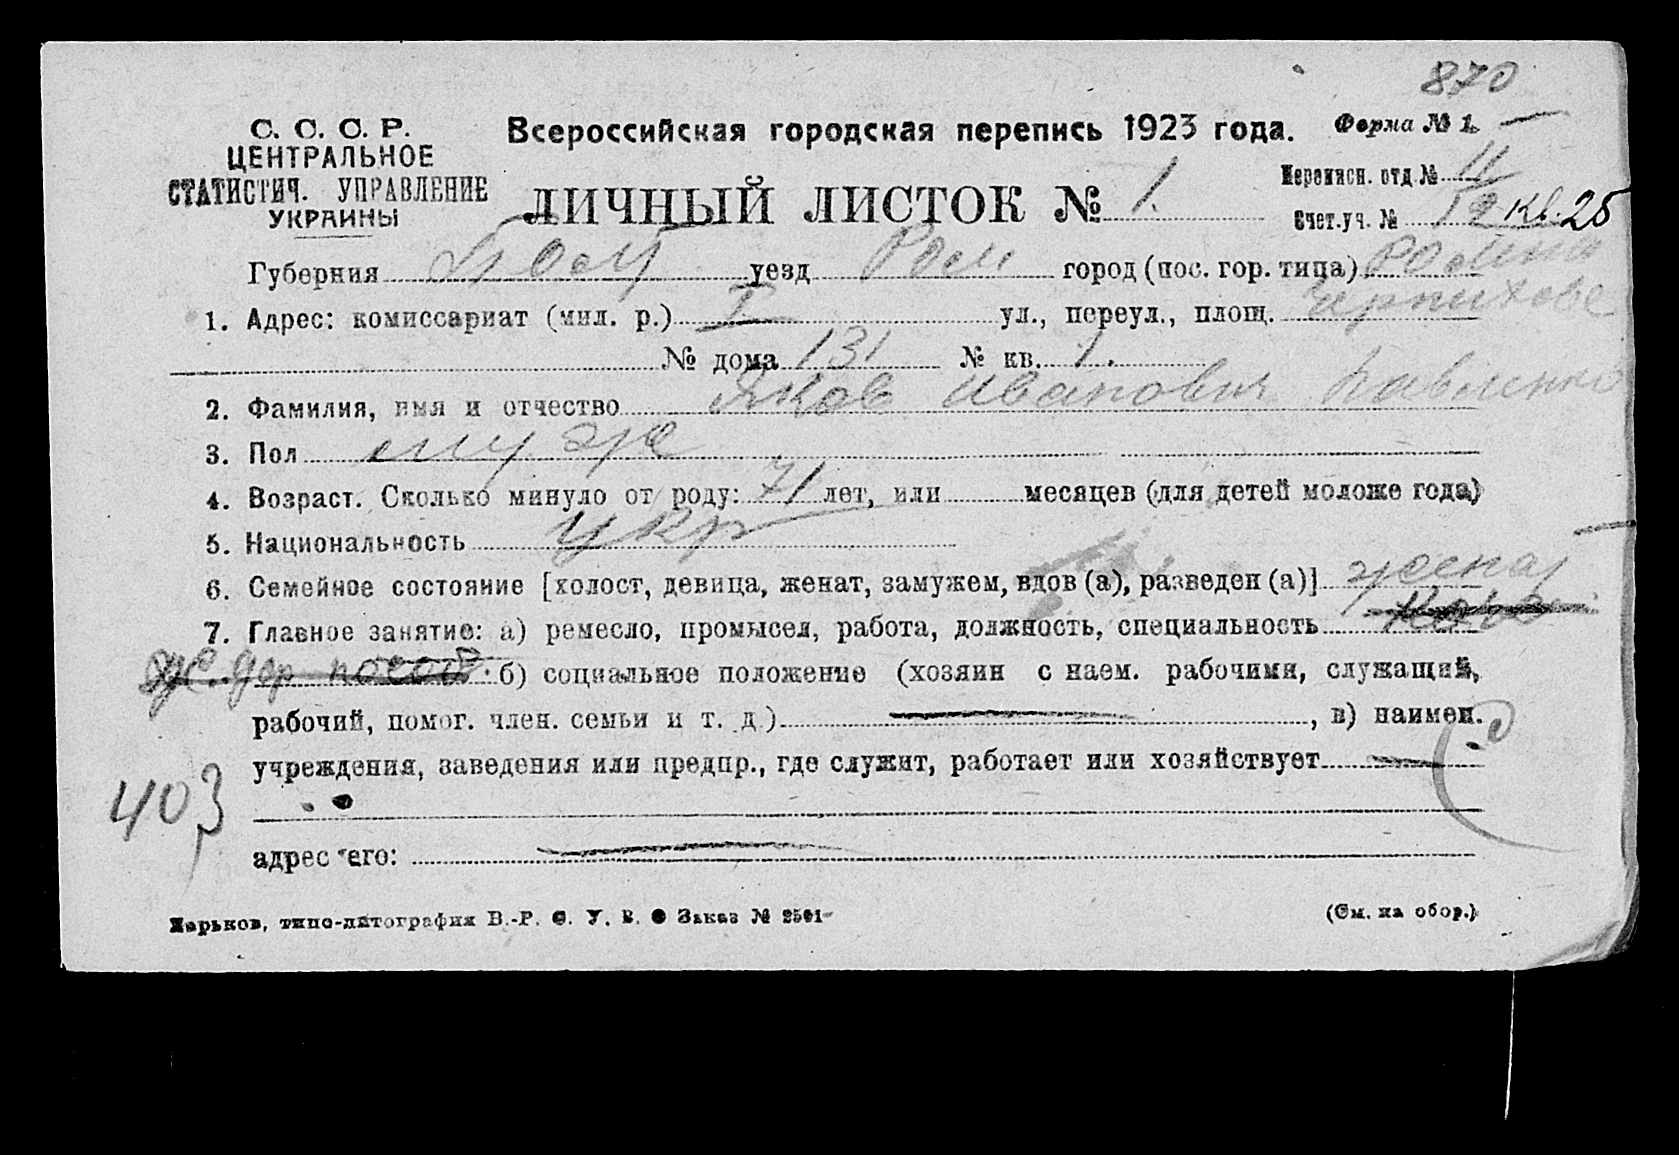 870
С. С. С. Р.
ЦЕНТРАЛЬНОЕ
СТАТИСТИЧ. УПРАВЛЕНИЕ
УКРАИНЫ
Всероссийская городская перепись 1923 года. Форма № 1.
ЛИЧНЫЙ ЛИСТОК № 1.
Переписн. отд. № 11
Счет.уч. № 19 кв. 25
Губерния уезд Ром город (пос. гор. типа) Ромны
1. Адрес: комиссариат (мил. р.) I ул., переул., площ.
№ дома 131 № кв. 1.
2. Фамилия, имя и отчество Яков Иванович Павленко
3. Пол муж
4. Возраст. Сколько минуло от роду: 71 лет, или месяцев (для детей моложе года)
5. Национальность укр
6. Семейное состояние [холост, девица, женат, замужем, вдов (а), разведен (а)] женат
7. Главное занятие: а) ремесло, промысел, работа, должность, специальность
б) социальное положение (хозяин с наем. рабочими, служащий,
рабочий, помог. член. семьи и т. д.) , в) наимен.
учреждения, заведения или предпр., где служит, работает или хозяйствует
403
адрес его:
Харьков, типо-литография В.-Р. С. У. В. Заказ № 2501
(См. на обор.)